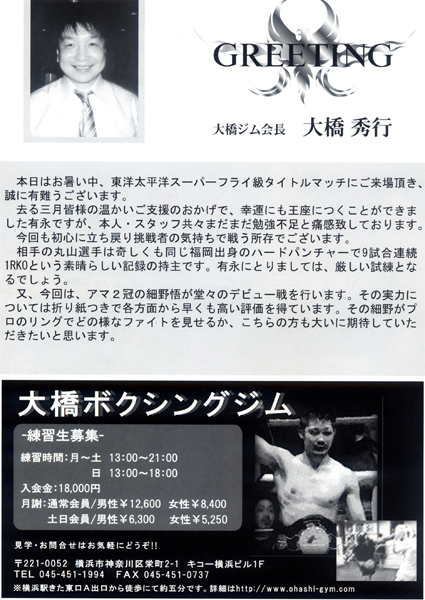 GREETING
大橋ジム会長 大橋 秀行
本日はお暑い中、東洋太平洋スーパーフライ級タイトルマッチにご来場頂き、
誠に有難うございます。
去る三月皆様の温かいご支援のおかげで、幸運にも王座につくことができま
した有永ですが、本人・スタッフ共々まだまだ勉強不足と痛感致しております。
今回も初心に立ち戻り挑戦者の気持ちで戦う所存でございます。
相手の丸山選手は奇しくも同じ福岡出身のハードパンチャーで9試合連続
1RKOという素晴らしい記録の持主です。有永にとりましては、厳しい試練とな
るでしょう。
又、今回は、アマ２冠の細野悟が堂々のデビュー戦を行います。その実力に
ついては折り紙つきで各方面から早くも高い評価を得ています。その細野がプ
ロのリングでどの様なファイトを見せるか、こちらの方も大いに期待していた
だきたいと思います。
大橋ボクシングジム
-練習生募集-
練習時間：月～土 13:00～21:00
日 13:00～18:00
入会金：18,000円
月謝：通常会員/男性￥12,600 女性￥8,400
土日会員/男性￥6,300 女性￥5,250
見学・お問合せはお気軽にどうぞ!!
〒221-0052 横浜市神奈川区栄町2-1 キコー横浜ビル1F
TEL 045-451-1994 FAX 045-451-0737
※横浜駅きた東口A出口から徒歩にて約五分です。詳細はhttp://www.ohashi-gym.com/